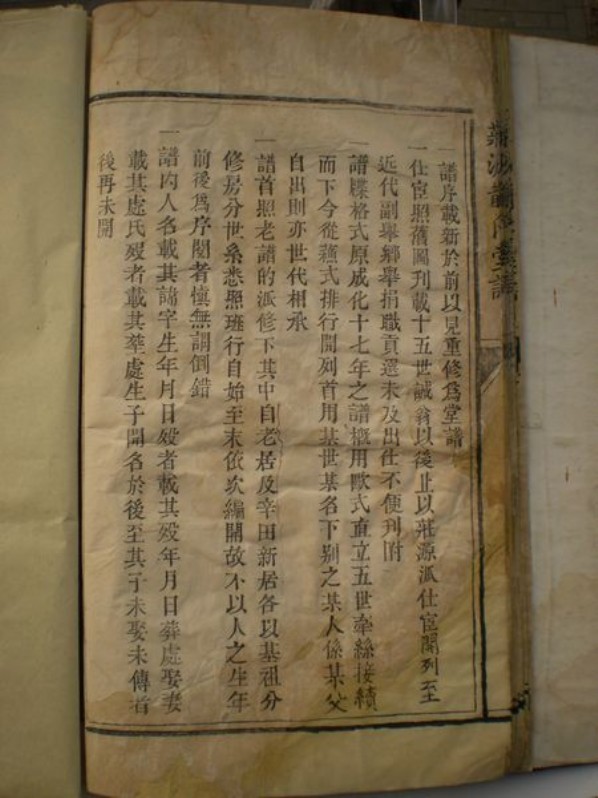 一譜序載新於前以見重修爲堂譜
一仕宦照舊圖刊載十五世誠翁以後止以莊源派仕宦開列至
近代副舉鄉舉捐職貢選未及出仕不便刊附
一譜牒格式原成化十七年之譜概用歐式直立五世牽絲接續
而下今從蘓式排行開列首用某世某名下別之某人係某父
自出則亦世代相承
一譜首照老譜的派修下其中自老居及辛田新居各以基祖分
修房分世系悉照班行自始至末依次編開故不以人之生年
前後爲序閱者慎無謂倒錯
一譜内人名載其諱字生年月日殁者載其殁年月日葬處娶妻
載其處氏殁者載其葬處生子開名於後至其子未娶未傳者
後再未開
堂譜